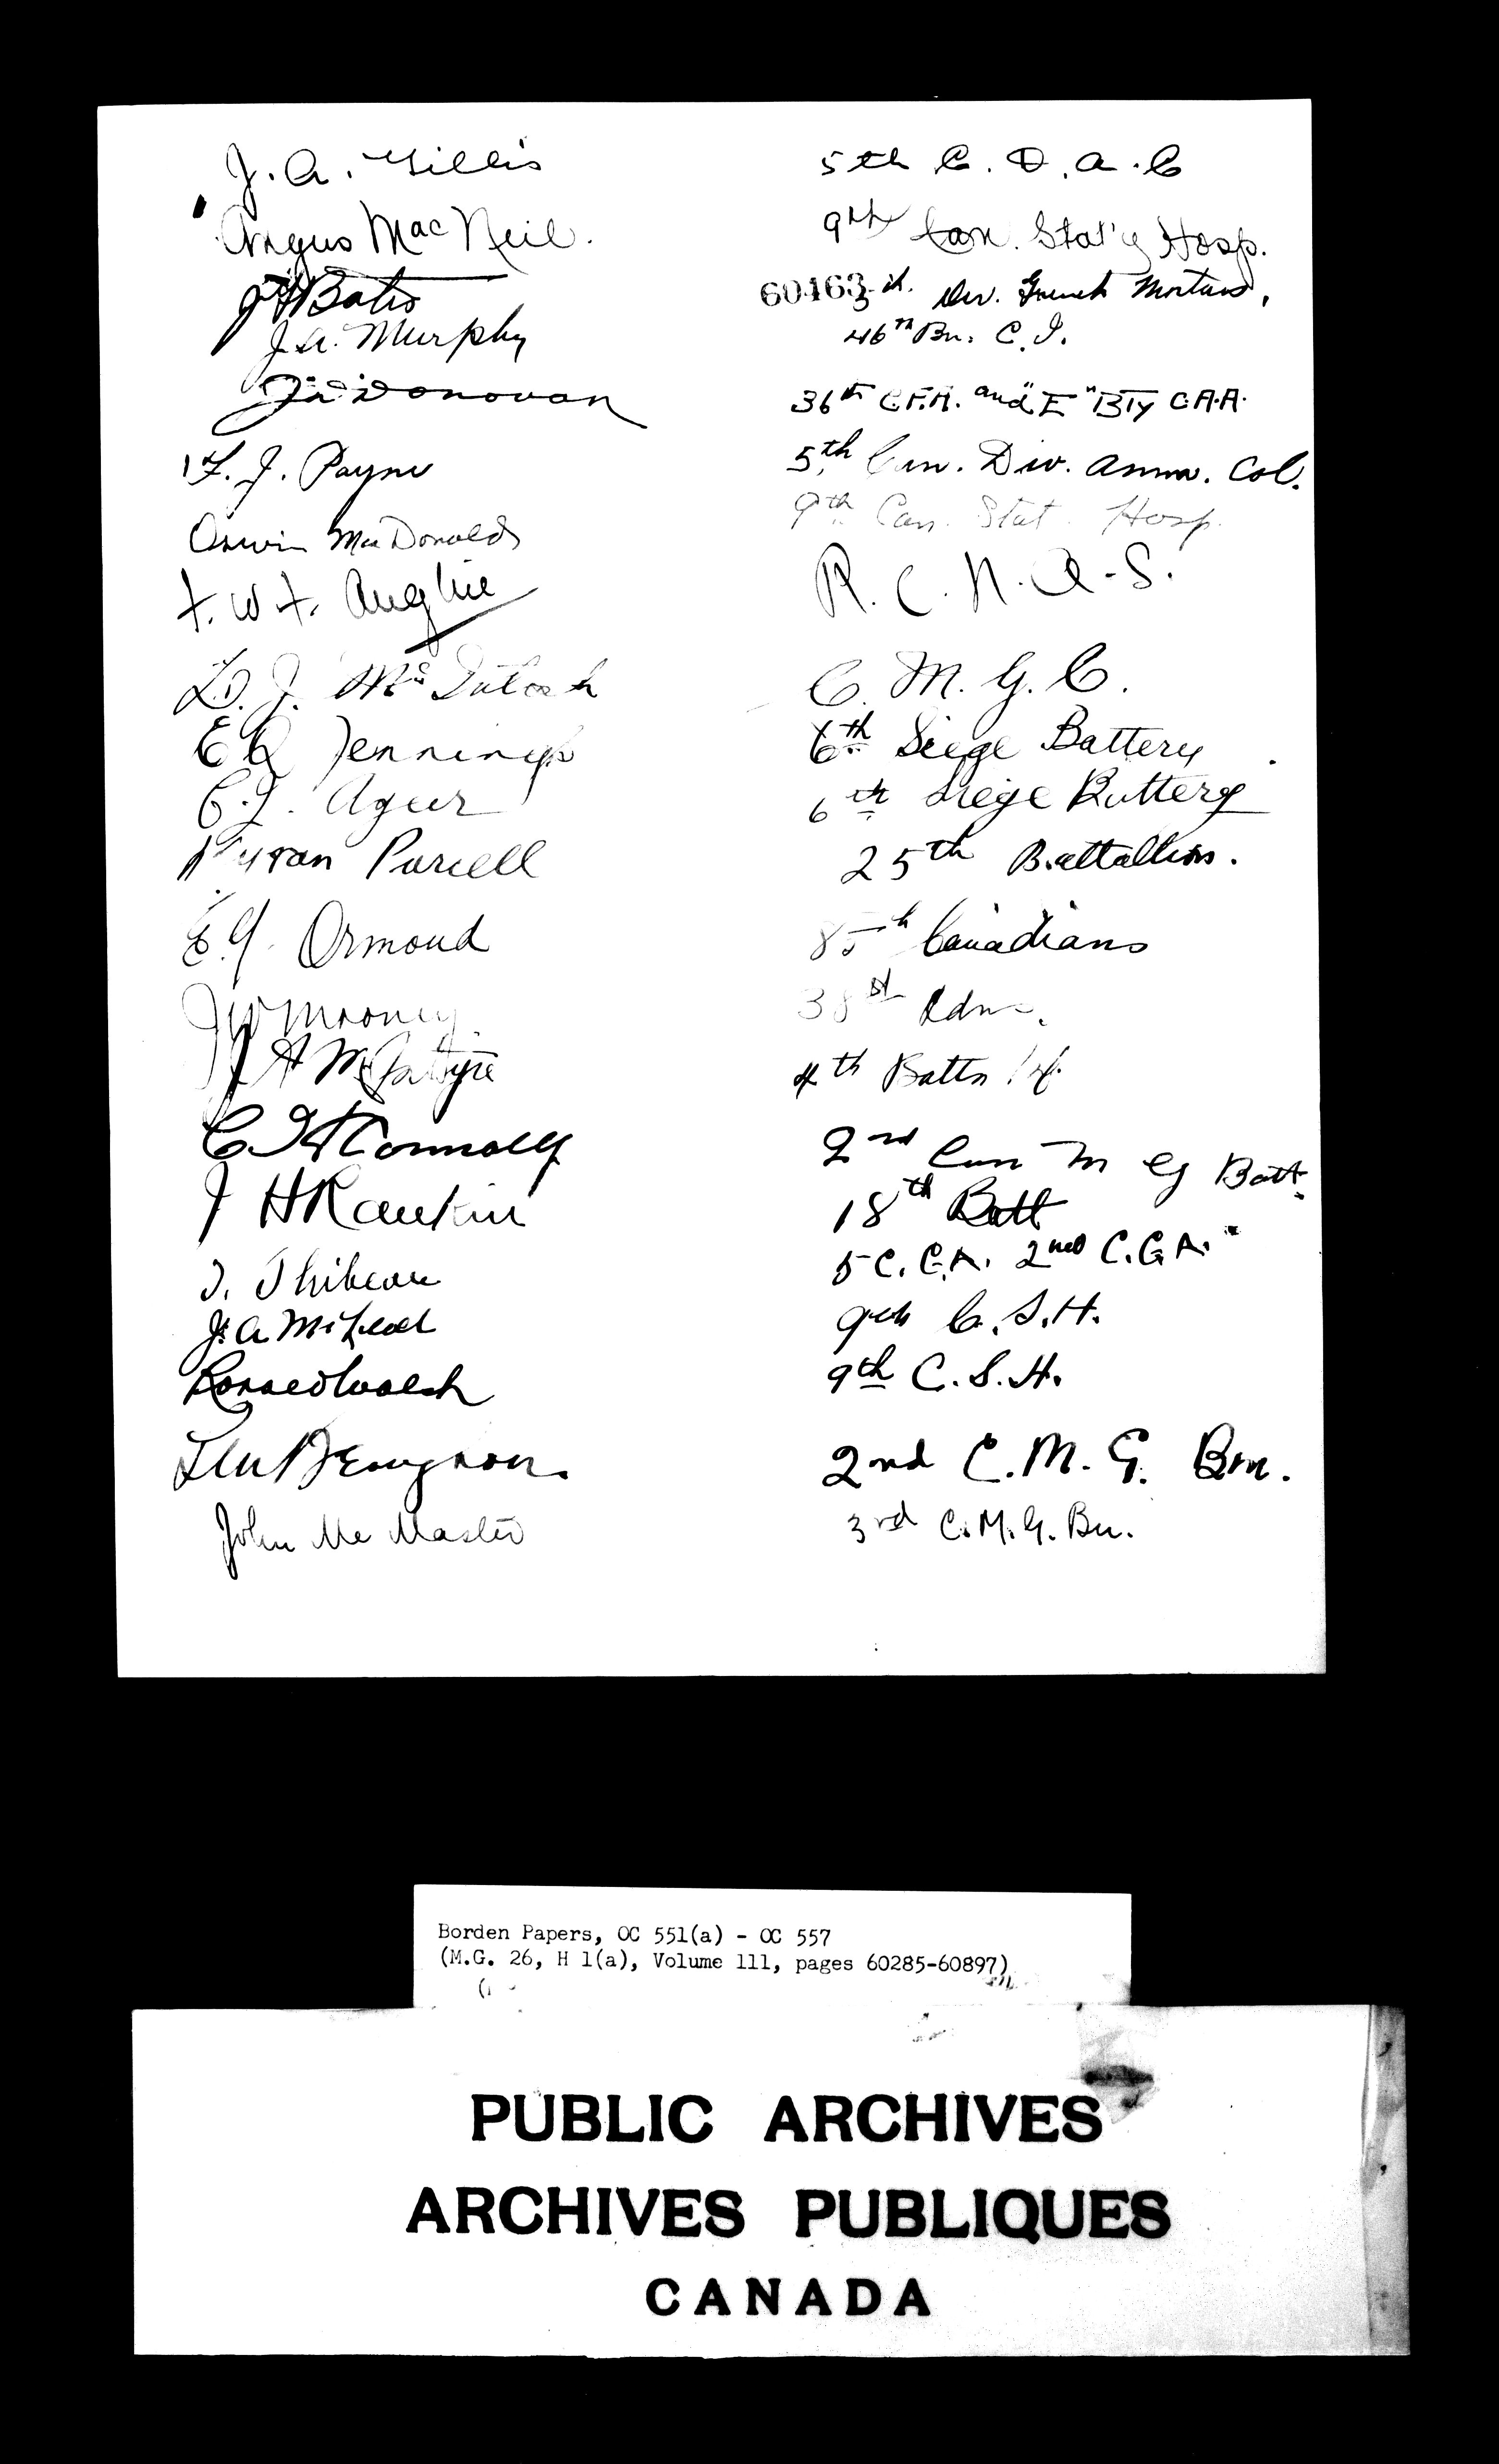 J. A. Gillis 5th C. D. A. C
Angus MacNeil. 9th Can. Stat'y Hosp.
Bates 60463 Div. Trench Mortars,
J. A. Murphy 46th Bn. C. I.
Donovan 36th C.F.A. and "E" Bty C.A.A.
F. J. Payne 5th Can. Div. Amm. Col.
MacDonald 9th Can. Stat. Hosp.
F. W. F. Anglin R. C. N. A. S.
D. J. McIntosh C. M. G. C.
E Jennings 6th Siege Battery
Ager 6th Siege Battery
Purcell 25th Battallion.
E. Y. Ormond 85th Canadians
J W Mooney 38st
J A McIntyre 4th Battn Inf.
C Connolly 2nd Can M G Batt.
J H Rankin 18th Batt
J. Thibeau 5 C. G.A. 2nd C.G.A.
J. A McLeod 9th C. S. H.
Ronald Walsh 9th C. S. H.
2nd C. M. G. Bn.
John McMaster 3rd C. M. G. Bn.
Borden Papers, OC 551(a) - OC 557
(M.G. 26, H 1(a), Volume 111, pages 60285-60897)
PUBLIC ARCHIVES
ARCHIVES PUBLIQUES
CANADA